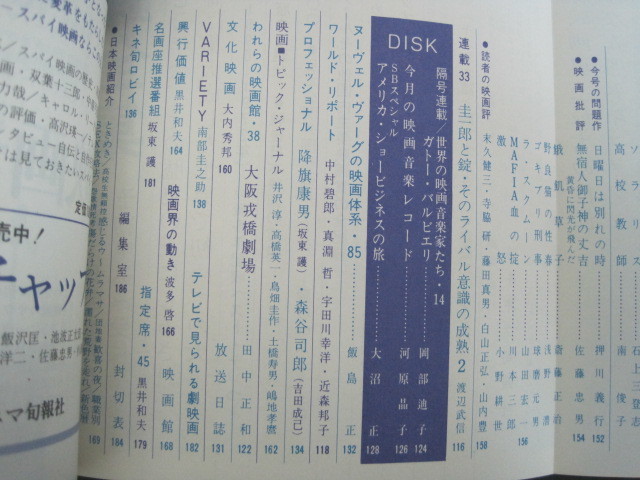 ソラリス……石上登志
高校教師……南俊子
●今号の問題作
日曜日は別れの時……押川義行 152
●映画批評
無宿人御子神の丈吉
黄昏に閃光が飛んだ……佐藤忠男 154
野良猫の性春……浅野潜
ゴキブリ刑事……球磨元男
ラ・スクムーン……山田宏一 156
MAFIA血の掟……川本三郎
激怒……小野耕世
●読者の映画評
末久健三・寺脇研・藤田真男・白山正弘・山内豊 158
連載33 圭二郎と錠・そのライバル意識の成熟2 渡辺武信 116
DISK
隔号連載/世界の映画音楽家たち・14
ガトー・バルビエリ……岡部迪子 124
今月の映画音楽レコード……河原晶子 126
SBスペシャル
アメリカ・ショービジネスの旅……大沼正 128
ヌーヴェル・ヴァーグの映画体系・85……飯島正 132
ワールド・リポート 中村碧郎・真淵哲・宇田川幸洋・近森邦子 118
プロフェッショナル 降旗康男(坂東護)・森谷司郎(吉田成己) 134
映画■トピック・ジャーナル 井沢淳・高橋英一・鳥畑圭作・土橋寿男・嶋地孝麿 162
われらの映画館・38 大阪戎橋劇場……田中正和 122
文化映画 大内秀邦 160
放送日誌 131
VARIETY 南部圭之助 138
テレビで見られる劇映画 182
興行価値 黒井和夫 164
映画界の動き 波多啓 166
映画館 168
名画座推選番組 坂東護 181
指定席・45 黒井和夫 179
キネ旬ロビイ 136
編集室 186
封切表 184
●日本映画紹介
169
売中!
飯沢匡・池波正太郎
佐藤忠男
マ旬報社